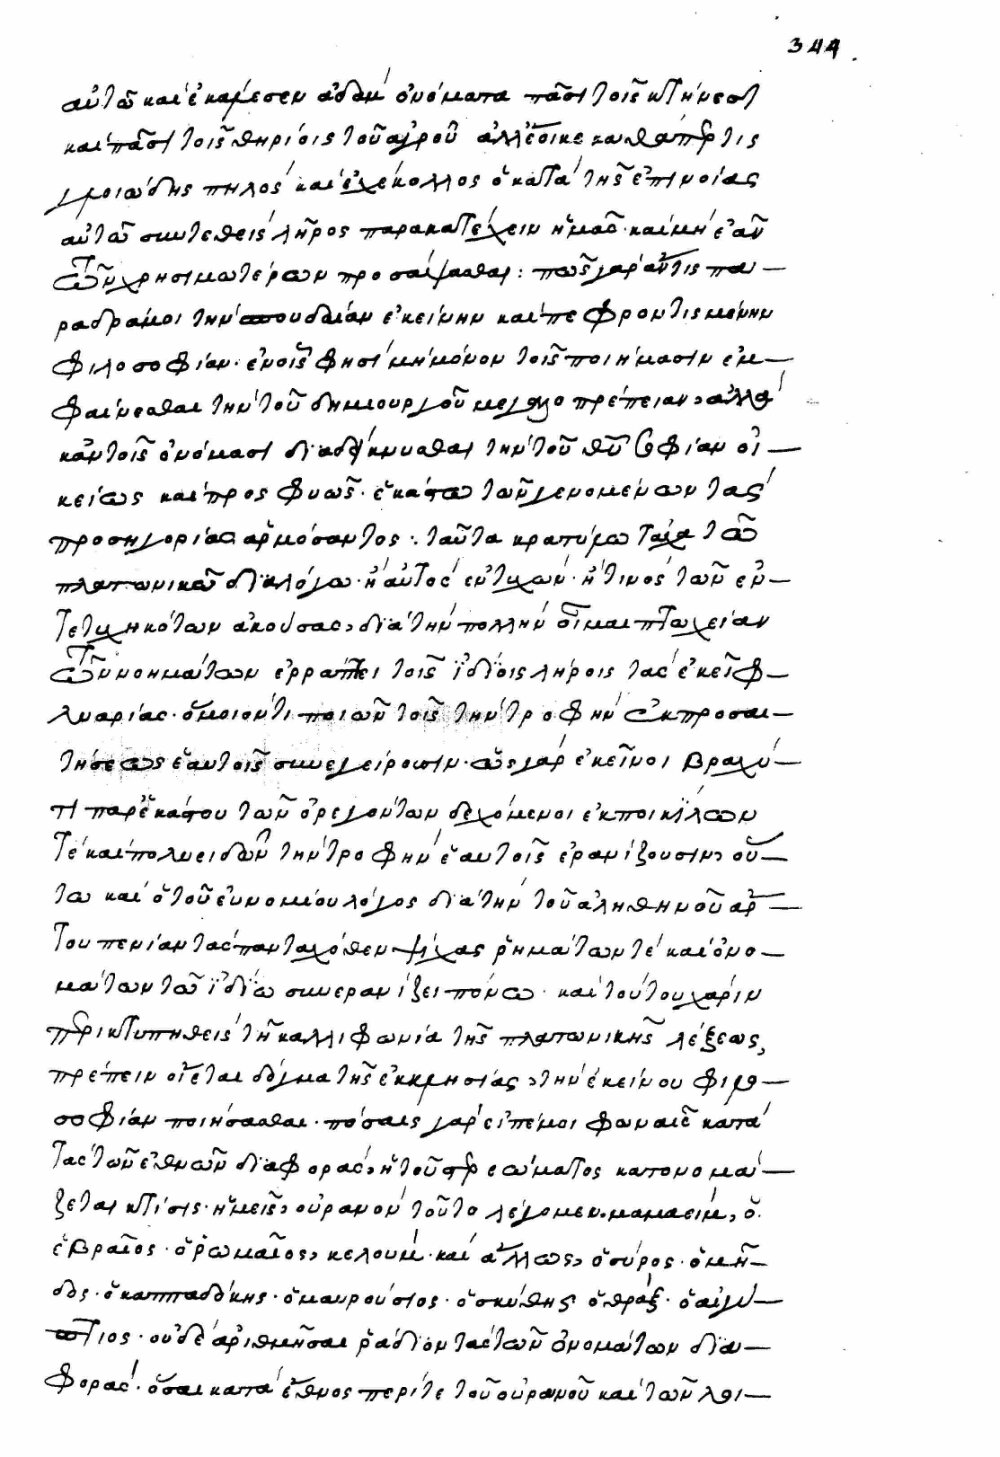 344
αὐτῶ καὶ ἐκάλεσεν ἀδὰμ ὀνόματα πᾶσι τοῖς κτήνεσι
καὶ πᾶσι τοῖς θηρίοις τοῦ ἀγροῦ ἀλλ' ἔοικε καθάπερ τις
γλοιώδης πηλὸς καὶ ἐχέκολλος ὁ κατὰ τῆς ἐπινοίας
αὐτῶ συντεθεὶς λῆρος παρακατέχειν ἡμᾶς· καὶ μὴ ἐᾶν
τῶν χρησιμωτέρων προσάψασθαι: πῶς γὰρ ἄν τις πα
ραδράμοι τὴν σπουδαίαν ἐκείνην καὶ πεφροντισμένην
φιλοσοφίαν· ἐν οἷς φησὶ μὴ μόνον τοῖς ποιήμασιν ἐμ
φαίνεσθαι τὴν τοῦ δημιουργοῦ μεγαλοπρέπειαν, ἀλλὰ
κἂν τοῖς ὀνόμασι διαδείκνυσθαι τὴν τοῦ θυ σοφίαν οἰ
κείως καὶ προσφυῶς· ἑκάστω τῶν γενομένων τὰς
προσηγορίας ἁρμόσαντος: ταῦτα κρατύλω τάχα τῶ
πλατωνικῶ διαλόγω· ἢ αὐτὸς ἐντυχὼν· ἤ τινος τῶν ἐν
τετυχηκότων ἀκούσας, διὰ τὴν πολλὴν οἶμαι πτωχείαν
τῶν νοημάτων ἐρράπτει τοῖς ἰδίοις λήροις τὰς ἐκεῖ φ
λυαρίας· ὅμοιόν τι ποιῶν τοῖς τὴν τροφὴν ἐκ προσαι
τήσεως ἑαυτοῖς συνεγείρουσιν· ὡς γὰρ ἐκεῖνοι βραχύ
τι παρ' ἑκάστου τῶν ὀρεγόντων δεχόμενοι ἐκ ποικίλων
τὲ καὶ πολυειδῶν τὴν τροφὴν ἑαυτοῖς ἐρανίζουσιν, οὕ
τω καὶ ὁ τοῦ εὐνομίου λόγος διὰ τὴν τοῦ ἀληθινοῦ ἄρ
του πενίαν τὰς πανταχόθεν ψίχας ῥημάτων τὲ καὶ ὀνο
μάτων τῶ ἰδίω συνερανίζει πόνω· καὶ τούτου χάριν
περικτυπηθεὶς τῆ καλλιφωνία τῆς πλατωνικῆς λέξεως,
πρέπειν οἴεται δόγμα τῆς ἐκκλησίας, τὴν ἐκείνου φιλο
σοφίαν ποιήσασθαι· πόσαις γὰρ εἰπέ μοι φωναῖς κατὰ
τὰς τῶν ἐθνῶν διαφορὰς, ἡ τοῦ στερεώματος κατονομά
ζεται κτίσις· ἡμεῖς, οὐρανὸν τοῦτο λέγομεν. μαμαεὶμ, ὁ
ἑβραῖος· ὁ ῥωμαῖος, κελοὺμ· καὶ ἄλλως, ὁ σύρος· ὁ μῆ
δος· ὁ καππαδόκης· ὁ μαυρούσιος· ὁ σκύθης· ὁ θρὰξ· ὁ αἰγύ
πτιος· οὐδὲ ἀριθμῆσαι ῥάδιον τὰς τῶν ὀνομάτων δια
φορὰς· ὅσαι κατὰ ἔθνος περί τε τοῦ οὐρανοῦ καὶ τῶν λοι